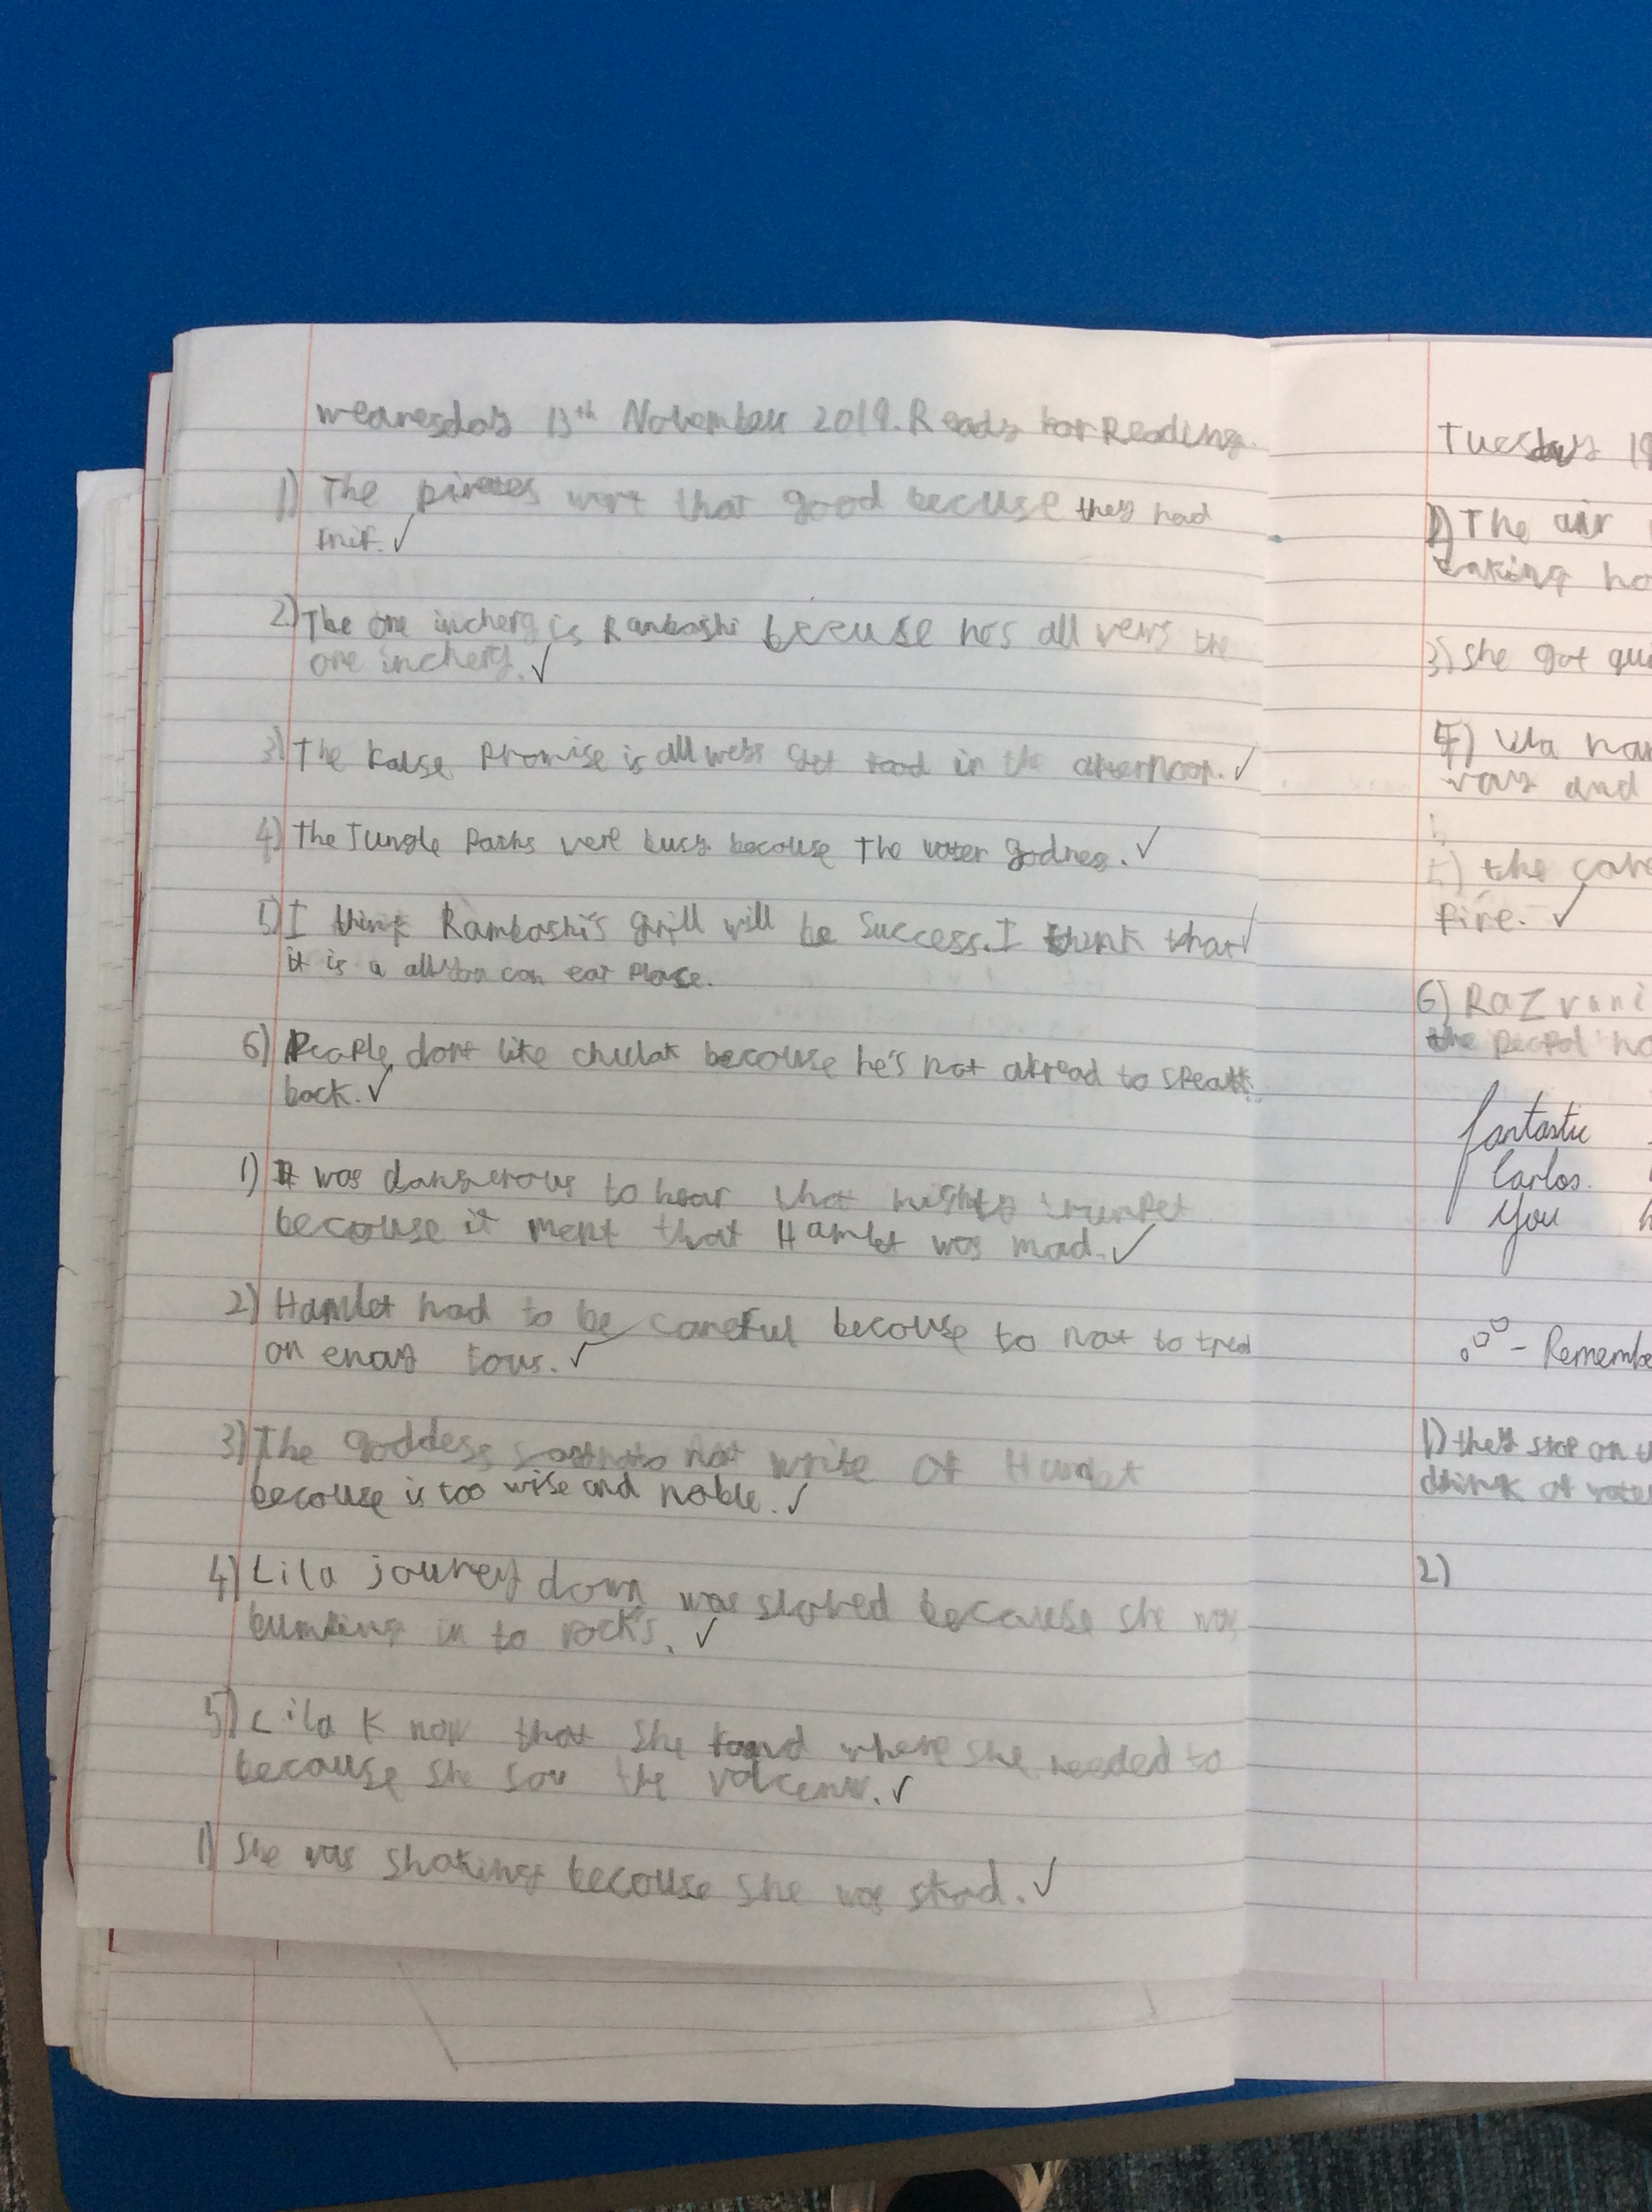 Wednesday 13th November 2019. Ready for Reading.
1) The pirates wert that good becuse they had
2) The one incherg is Rambashi becuse hes all vews the
one incherg. ✓
3) The false Promise is all weys get food in the afternoon. ✓
4) The Jungle Paths vere busy becouse The water godness. ✓
5) I think Rambashi's grill will be Success. I think that ✓
it is a all you can eat Plase.
6) People dont like chulak becouse he's not afread to speak
back. ✓
1) It was dangerous to hear that mighty trumpet
becouse it ment that Hamlet was mad. ✓
2) Hamlet had to be careful becouse to not to tred
on enay tows. ✓
3) The goddess not write of Hamlet
becouse is too wise and noble. ✓
4) Lila jouney down was slowed becouse she was
bumking in to rocks. ✓
5) Lila know that she fond where she needed to
becouse she sow the volcenw. ✓
1) She was shaking becouse she was stard. ✓
Tuesday 19
1) The air
taking ho
3) she got qui
4) Lila
ray and
5) the cave
fire. ✓
6) Razvani
the peopol
fantastic
Carlos.
You
- Remembe
1) they stop on t
drink of water
2)